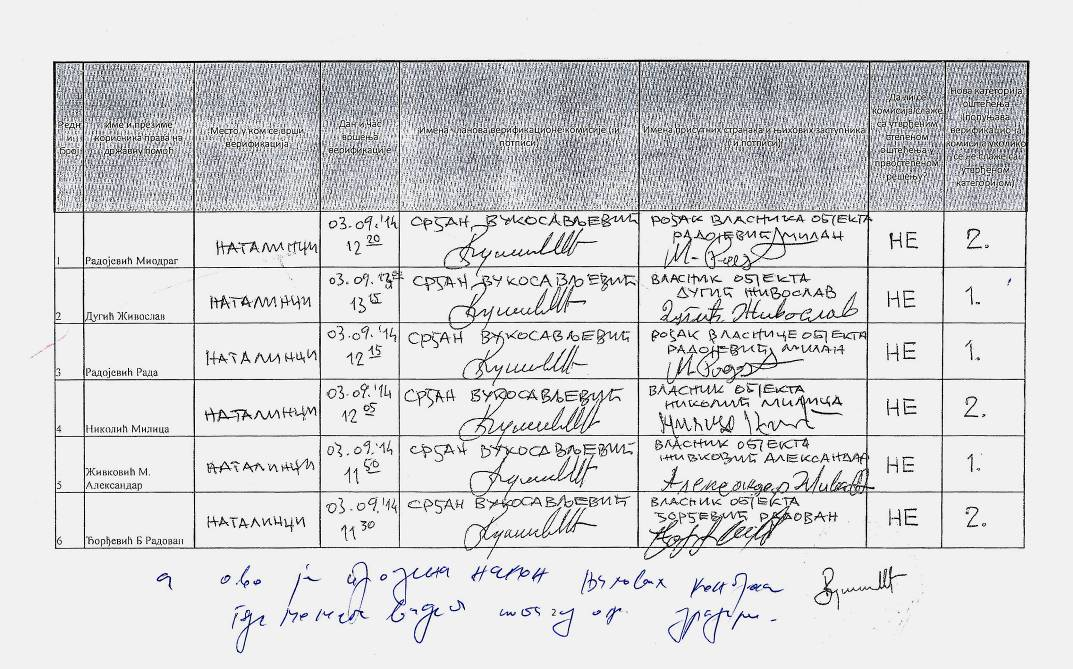 Редни број
Име и презиме корисника права на државну помоћ
Место у ком се врши верификација
Дан и час вршења верификације
Имена чланова верификационе комисије (и потписи)
Имена присутних странака и њихових заступника (и потписи)
Да ли се комисија слаже са утврђеним степеном оштећења у првостепеном решењу?
Нова категорија оштећења (попуњава верификациона комисија уколико се не слаже са утврђеном категоријом)
1 Радојевић Миодраг НАТАЛИНЦИ 03.09.'14 12 20 СРЂАН ВУКОСАВЉЕВИЋ РОЂАК ВЛАСНИКА ОБЈЕКТА РАДОЈЕВИЋ МИЛАН НЕ 2.
2 Дугић Живослав НАТАЛИНЦИ 03.09. 13 15 СРЂАН ВУКОСАВЉЕВИЋ ВЛАСНИК ОБЈЕКТА ДУГИЋ ЖИВОСЛАВ Дугић Живослав НЕ 1.
3 Радојевић Рада НАТАЛИНЦИ 03.09.'14 12 15 СРЂАН ВУКОСАВЉЕВИЋ РОЂАК ВЛАСНИЦЕ ОБЈЕКТА РАДОЈЕВИЋ МИЛАН НЕ 1.
4 Николић Милица НАТАЛИНЦИ 03.09.'14 12 05 СРЂАН ВУКОСАВЉЕВИЋ ВЛАСНИК ОБЈЕКТА НИКОЛИЋ МИЛИЦА НЕ 2.
5 Живковић М. Александар НАТАЛИНЦИ 03.09.'14 11 50 СРЂАН ВУКОСАВЉЕВИЋ ВЛАСНИК ОБЈЕКТА ЖИВКОВИЋ АЛЕКСАНДАР НЕ 1.
6 Ђорђевић Б Радован НАТАЛИНЦИ 03.09.'14 11 30 СРЂАН ВУКОСАВЉЕВИЋ ВЛАСНИК ОБЈЕКТА ЂОРЂЕВИЋ РАДОВАН НЕ 2.
а ово је